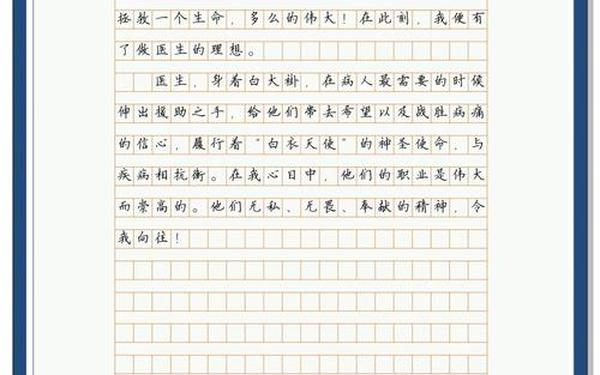 拯救一个生命，多么的伟大！在此刻，我便有
了做医生的理想。
医生，身着白大褂，在病人最需要的时候
伸出援助之手，给他们带去希望以及战胜病痛
的信心，履行着“白衣天使”的神圣使命，与
疾病相抗衡。在我心目中，他们的职业是伟大
而崇高的。他们无私、无畏、奉献的精神，令
我向往！